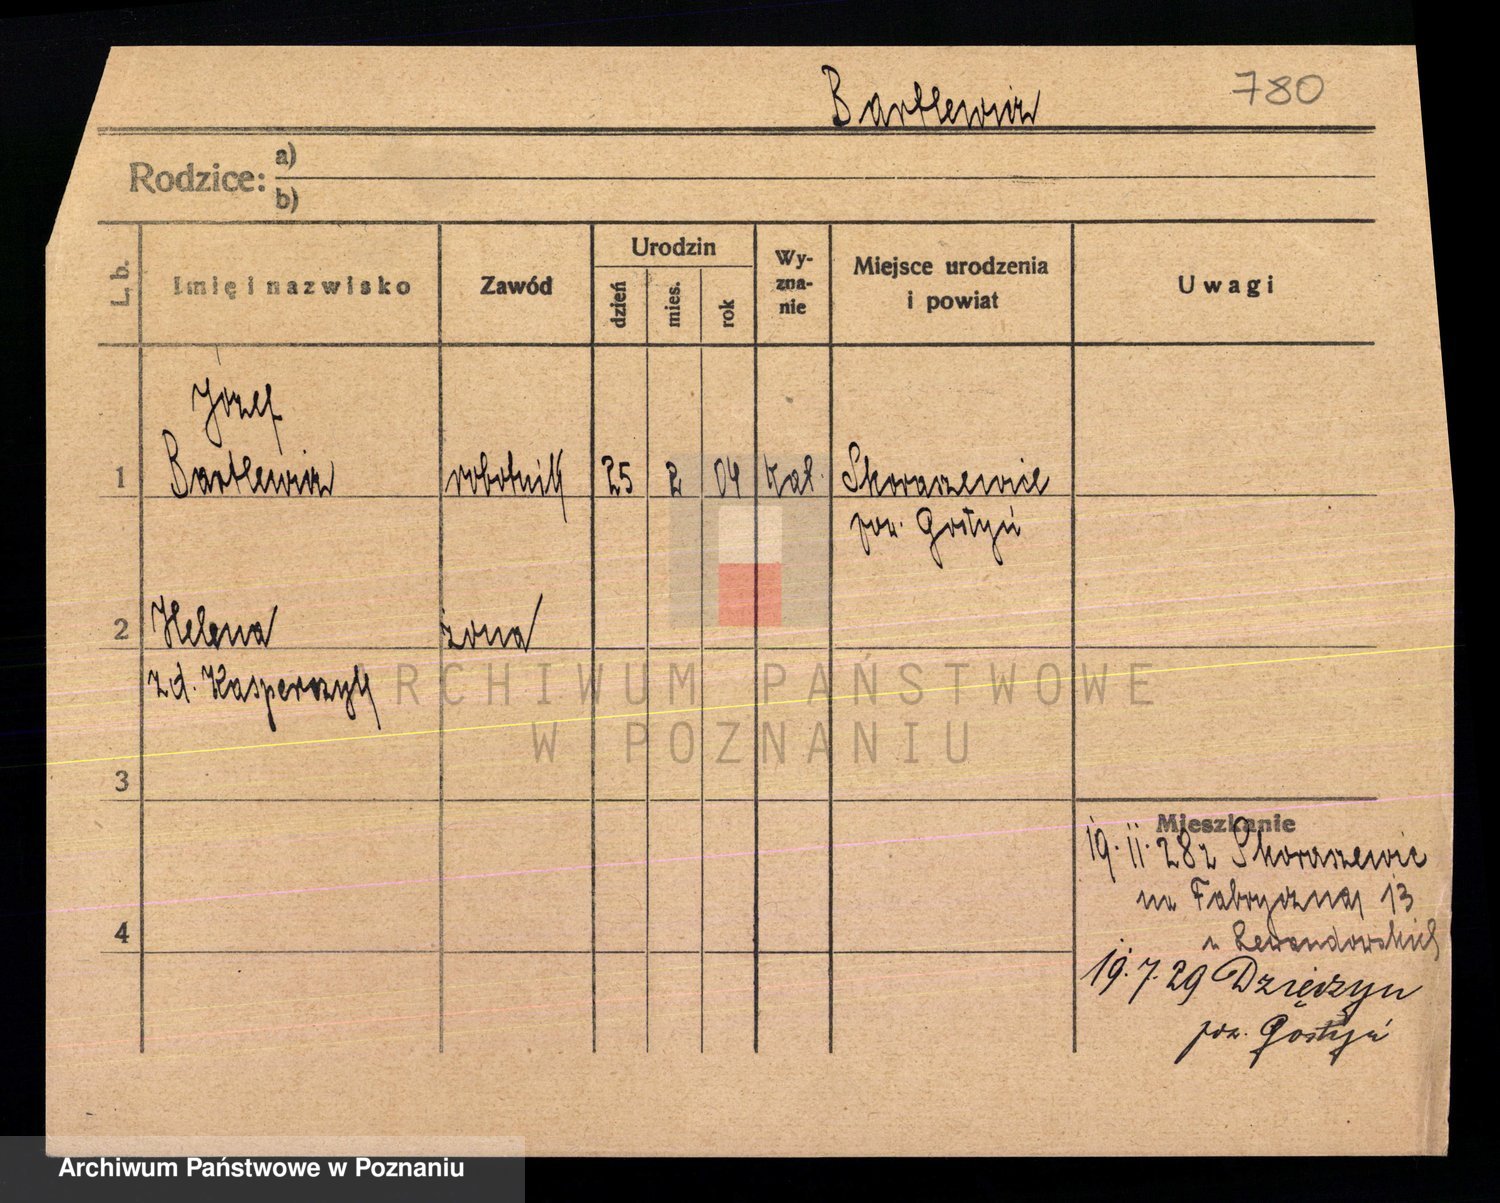 Bartlewicz 780
Rodzice: a)
b)
L. b. Imię i nazwisko Zawód Urodzin dzień mies. rok Wy-
zna-
nie Miejsce urodzenia
i powiat Uwagi
Józef
1 Bartlewicz robotnik 25 2 04 kat. Skoraszewice
pow. Gostyń
2 Helena żona
zd. Kasperczyk
3
Mieszkanie
19.11.28 z Skoraszewic
na Fabryczną 13
4 u Lewandowskich
19.7.29 Dzięczyn
pow. Gostyń
ARCHIWUM PAŃSTWOWE
W POZNANIU
Archiwum Państwowe w Poznaniu